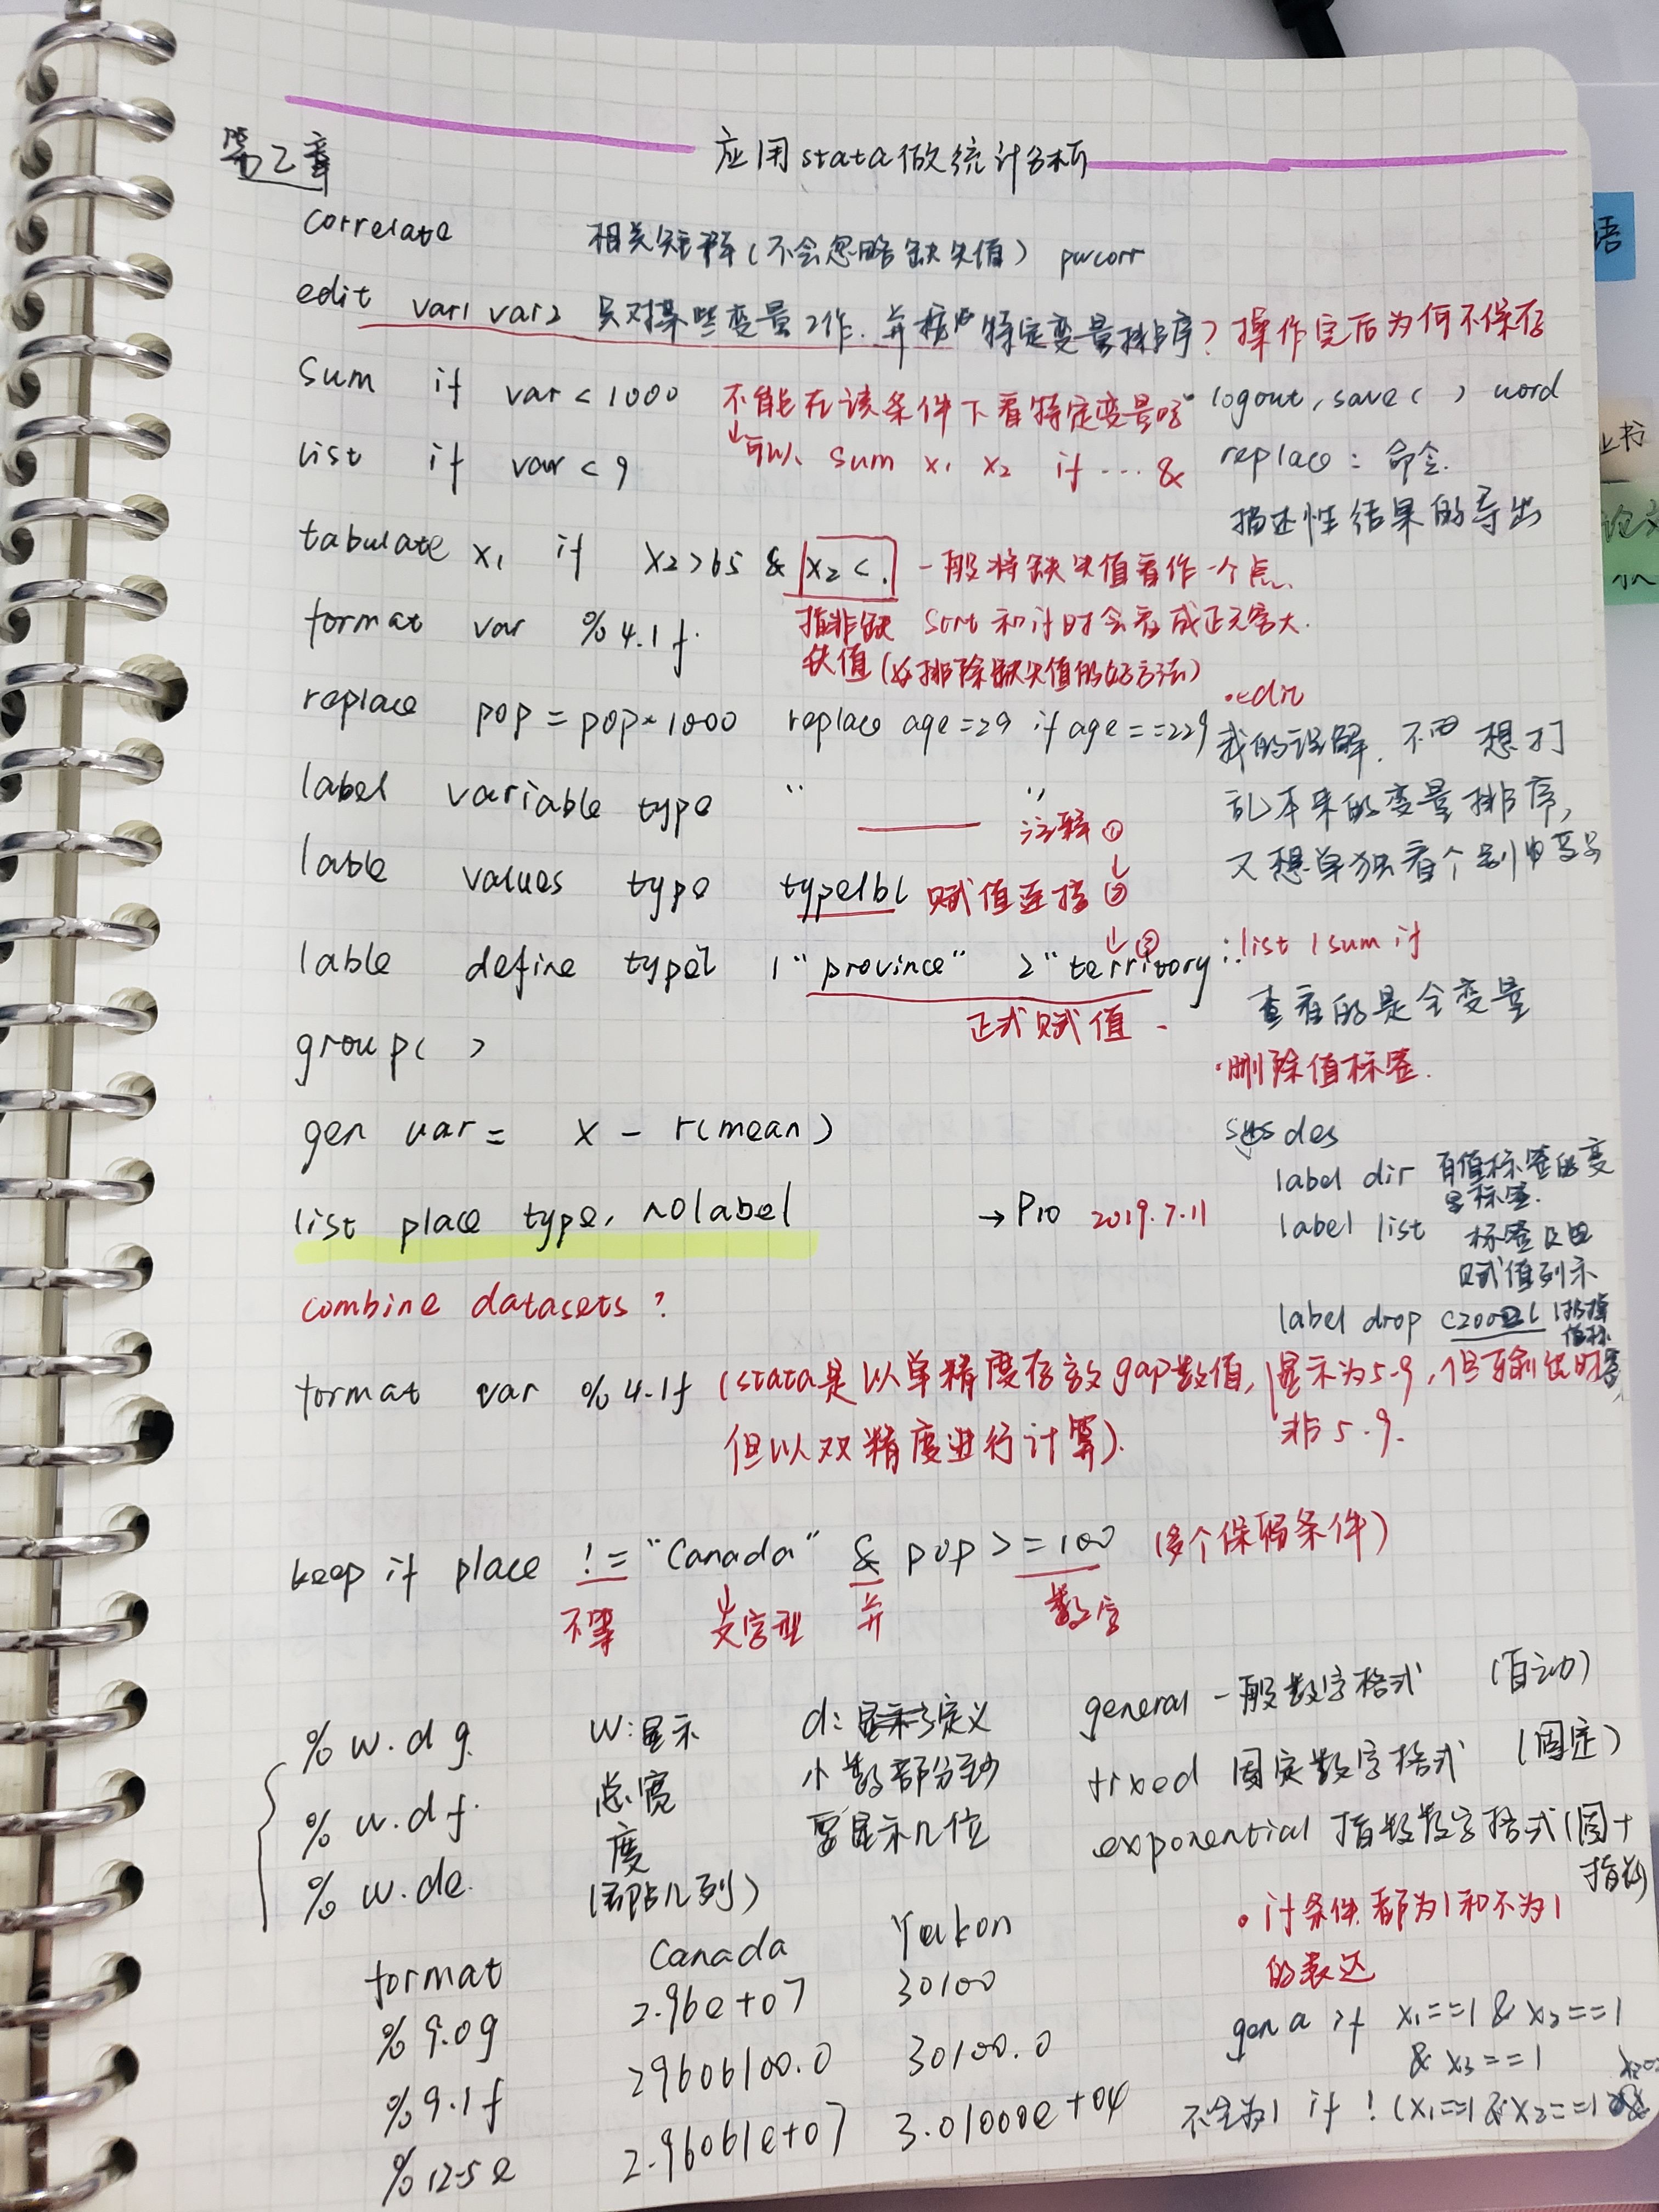 应用stata做统计分析
第2章
correlate 相关矩阵(不会忽略缺失值) pwcorr
edit var1 var2 只对某些变量工作.并按 特定变量排序? 操作完后为何不保存
sum if var < 1000 不能在该条件下看特定变量吗
↓可以 sum x1 x2 if ... &
list if var < 9
logout, save( ) word
replace: 命令.
描述性结果的导出
tabulate x1 if x2>65 & x2 < . 一般将缺失值看作一个点.
format var %4.1f. 指非缺 sort 和 if 时会看成正无穷大.
失值(排除缺失值的好方法)
replace pop = pop*1000 replace age=29 if age==229
label variable type " —— " 注释①
lable values type typelbl 赋值连接②
lable define typel 1"province" 2"territory ↓③
正式赋值
group( )
gen var = x - r(mean)
list place type, nolabel → P10 2019.7.11
combine datasets ?
·edit
我的误解. 不 想打
乱本来的变量排序,
又想单独看个别
:list / sum if
查看的是全变量
·删除值标签.
des
label dir 有值标签的变
标签.
label list 标签及
赋值列示
label drop
format var %4.1f (stata是以单精度存放gap数值, 显示为5.9,
但以双精度进行计算). 非5.9.
keep if place != "Canada" & pop >= 100 (多个保留条件)
不等 文字型 并 数字
%w.dg. w:显示 d: 定义 general 一般数字格式 (自动)
%w.df. 总宽 小数部分 fixed 固定数字格式 (固定)
%w.de. 度 要显示几位 exponential 指数数字格式(固+
(即占几列) 指数)
format Canada Yukon
%9.0g 2.96e+07 30100
%9.1f 29606100.0 30100.0
%12.5e 2.96061e+07 3.01000e+04
·if条件 都为1和不为1
的表达
gen a if x1==1 & x2==1
& x3==1
不全为1 if !(x1==1 & x2==1